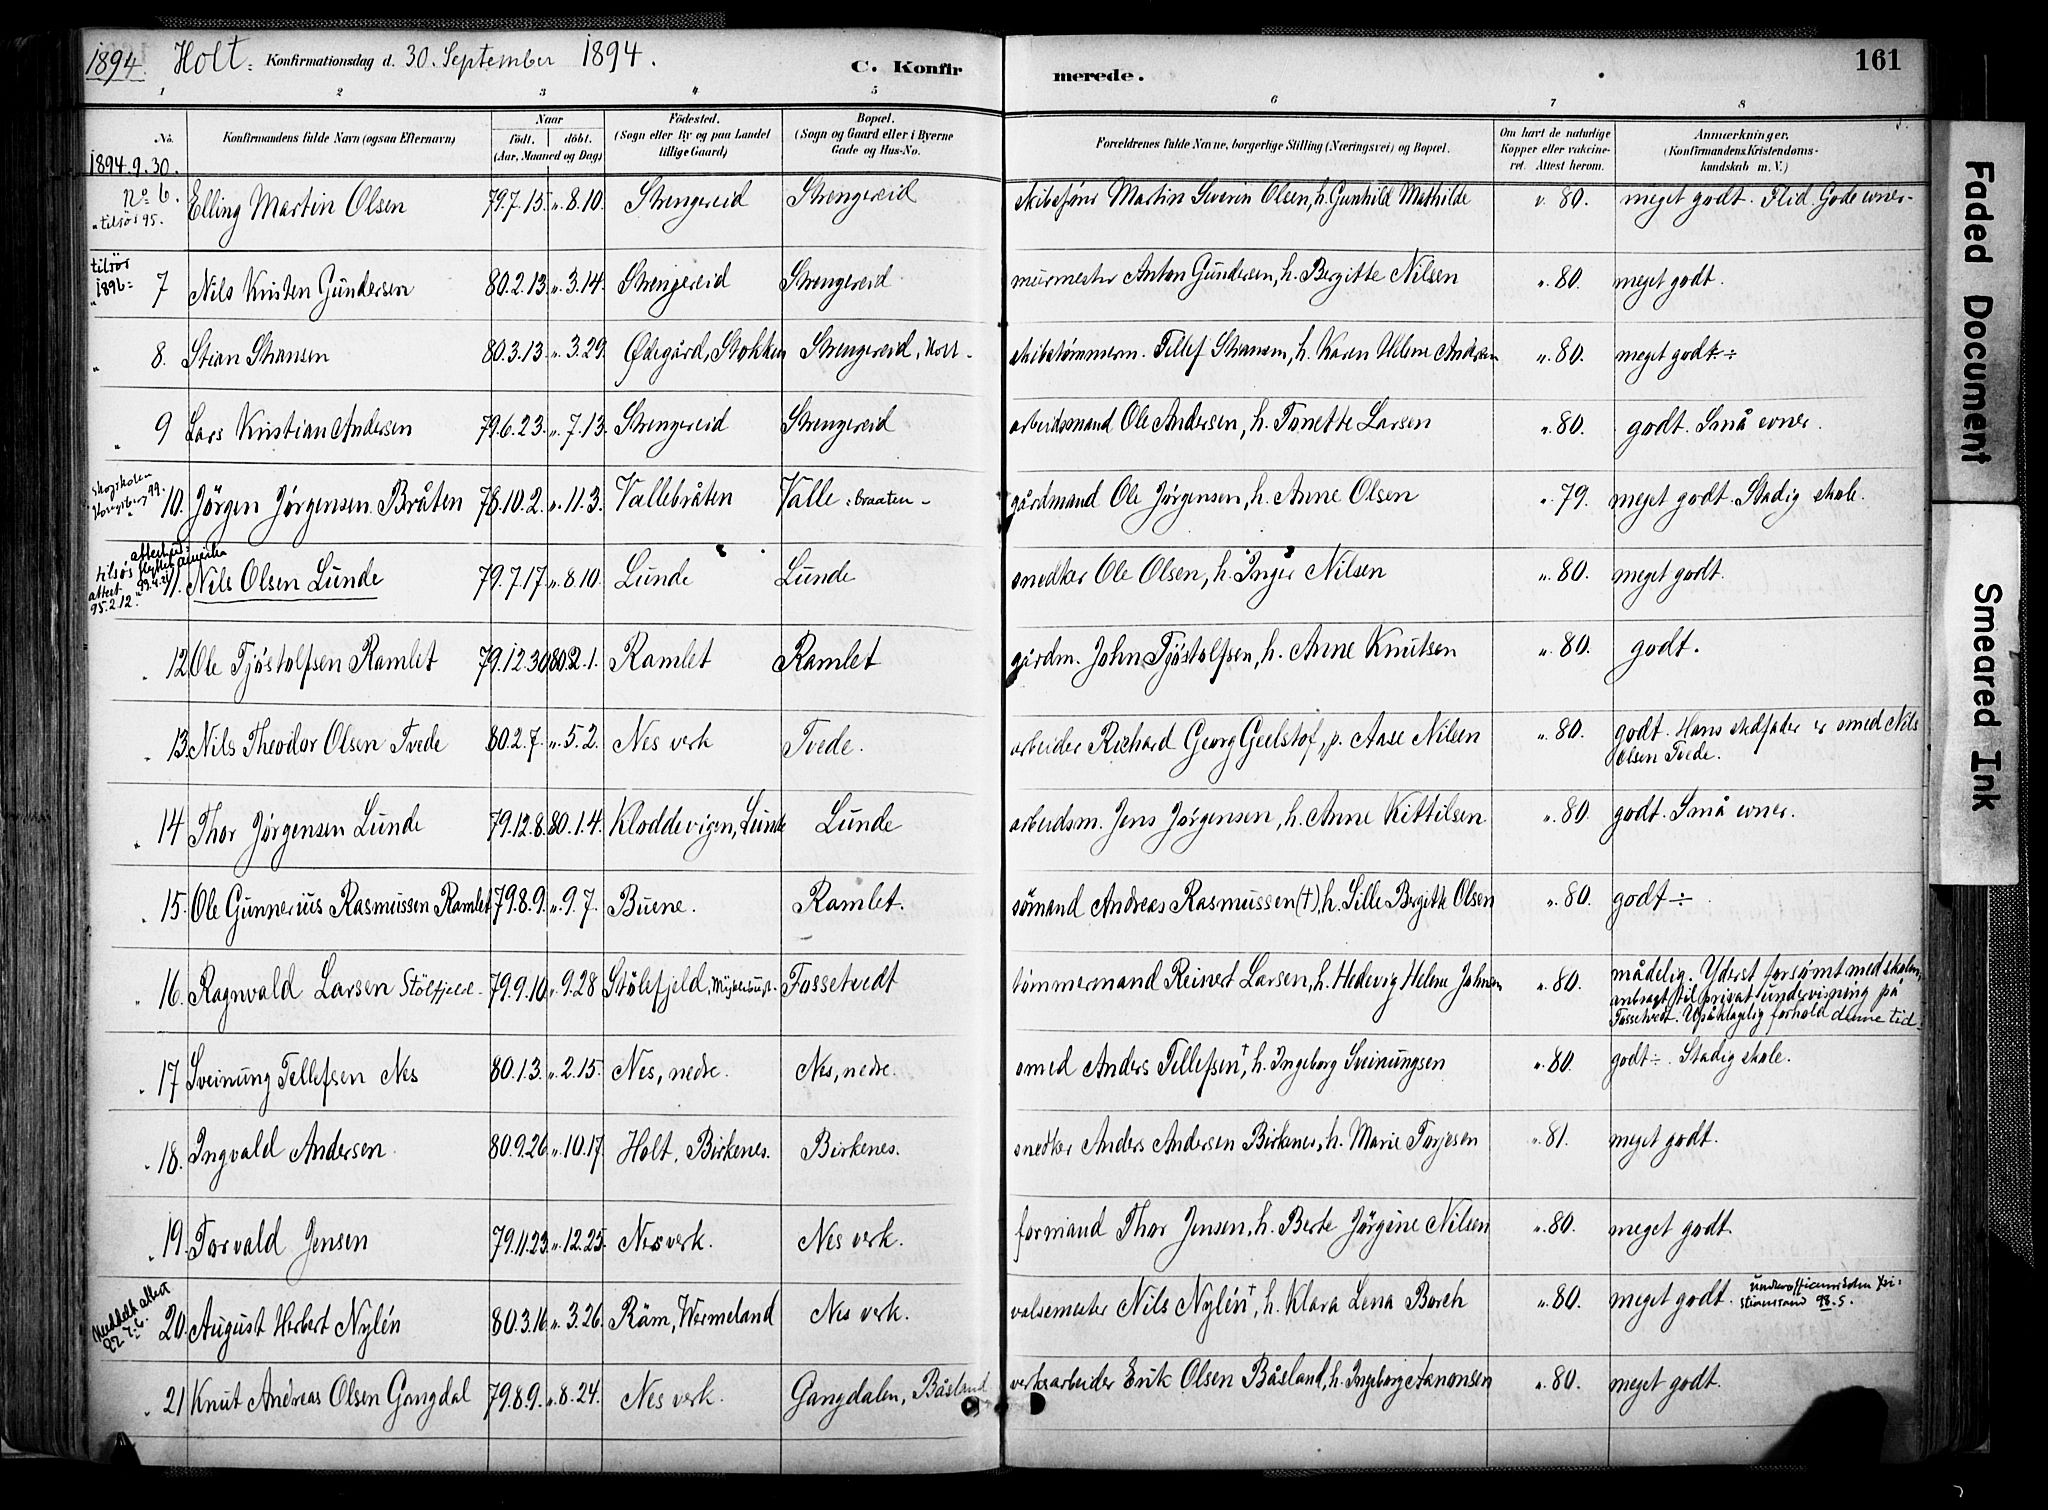 1894. Holt. Konfirmationsdag d. 30. September 1894. C. Konfirmerede. 161
1 2 3 4 5 6 7 8
No. Konfirmandens fulde Navn (ogsaa Efternavn) Naar født. døbt. (Aar, Maaned og Dag) Fødested. (Sogn eller By og paa Landet tillige Gaard) Bopæl. (Sogn og Gaard eller i Byerne Gade og Hus-No. Forældrenes fulde Navne, borgerlige Stilling (Næringsvei) og Bopæl. Om havt de naturlige Kopper eller vakcineret. Attest herom. Anmærkninger. (Konfirmandens Kristendomskundskab m. V.)
1894.9.30.
No 6. Elling Martin Olsen 79.7.15. „ 8.10. Strengereid Strengereid skibsfører Martin Severin Olsen, h. Gunhild Mathilde v. 80. meget godt. Flid. Gode evner.
„ tilsjøs 95.
tilsjøs 1896
„ 7 Nils Kristen Gundersen 80.2.13. „ 3.14. Strengereid Strengereid murmester Anton Gundersen, h. Bergitte Nilsen „ 80. meget godt.
„ 8. Stian Stiansen 80.3.13. „ 3.29. Ødegård, Stokken Strengereid, Holt skibstømmerm. Tellef Stiansen, h. Karen Helene Andersen „ 80. meget godt ÷
„ 9 Lars Kristian Andersen 79.6.23. „ 7.13. Strengereid Strengereid arbeidsmand Ole Andersen, h. Tonette Larsen „ 80. godt. Små evner.
skogskolen Kongsberg 99.
„ 10. Jörgen Jørgensen Bråten 78.10.2. „ 11.3. Vallebråten Valle braaten gårdmand Ole Jørgensen, h. Anne Olsen „ 79. meget godt. Stadig skole.
tilsjøs attest 95.2.12.
„ 11. Nils Olsen Lunde 79.7.17. „ 8.10. Lunde Lunde snedker Ole Olsen, h. Inger Nilsen „ 80. meget godt.
„ 12 Ole Tjöstolfsen Ramlet 79.12.30 80.2.1. Ramlet Ramlet gårdm. John Tjöstolfsen, h. Anne Knutsen „ 80. godt.
„ 13. Nils Theodor Olsen Tvede 80.2.7. „ 5.2. Nes verk Tvede. arbeider Richard Georg Geelstof, p. Aase Nilsen „ 80. godt. Hans stedfader er smed Nils
Olsen Tvede.
„ 14 Thor Jørgensen Lunde 79.12.8. 80.1.4. Kloddevigen, Lunde Lunde arbeidsm. Jens Jørgensen, h. Anne Kittilsen „ 80. godt. Små evner.
„ 15. Ole Gunnerius Rasmussen Ramlet 79.8.9. „ 9.7. Buene. Ramlet. sömand Andreas Rasmussen (†), h. Lille Bergitte Olsen „ 80. godt ÷
„ 16. Ragnvald Larsen Stölfjeld 79.9.10. „ 9.28 Stölefjeld, Fossetvedt tømmermand Reinert Larsen, h. Hedevig Helene Johnsen „ 80. mådelig. Yderst forsømt med skolen,
anbragt til privat undervisning på
Fossetvedt. Upåklagelig forhold denne tid.
„ 17 Sveinung Tellefsen Nes 80.1.3. „ 2.15. Nes, nedre. Nes, nedre. smed Anders Tellefsen †, h. Ingeborg Sveinungsen „ 80. godt ÷. Stadig skole.
„ 18. Ingvald Andersen 80.9.26. „ 10.17. Holt, Birkenes. Birkenes. snedker Anders Andersen Birkenes, h. Marie Torjesen „ 81. meget godt.
„ 19. Torvald Jensen 79.11.23. „ 12.25. Nes verk. Nes verk. formand Thor Jensen, h. Berte Jörgine Nilsen „ 80. meget godt.
Meddelt attest 97.7.6.
20. August Herbert Nylén 80.3.16 „ 3.26. Räm, Wermeland Nes verk. valsemester Nils Nylén †, h. Klara Lena Borch „ 80. meget godt. underofficerskolen Kristianssand 98.5.
„ 21 Knut Andreas Olsen Gangdal 79.8.9. „ 8.24. Nes verk. Gangdalen, Båsland verksarbeider Erik Olsen Båsland, h. Ingeborg Aanonsen „ 80. meget godt.
Faded Document
Smeared Ink